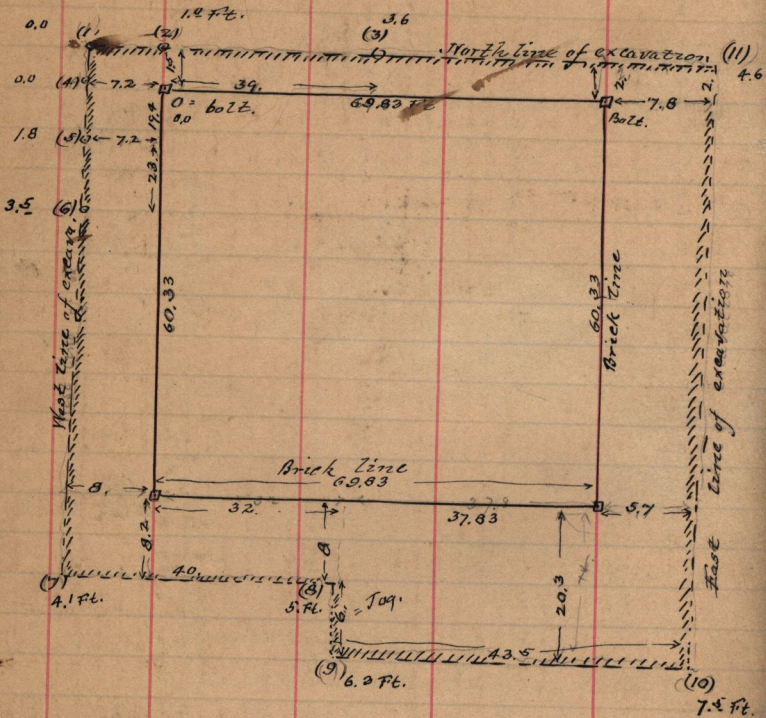 0.0
(1)
1.0 Ft.
(2)
3.6
(3)
North line of excavation
(11)
4.6
0.0 (4) 7.2
1.5
39.
69.83 Ft
2.
7.8
2.
0 = bolt.
0.0
Bolt.
1.8 (5) 7.2
19.4
23.4
3.5 (6)
West line of excava.
60.33
60.33
Brick line
East line of excavation
Brick line
69.83
8.
32.
37.83
5.7
8.2
8
40.
(7)
4.1 Ft.
(8)
5. Ft.
6. = Jog.
20.3
14
43.5
(9)
6.3 Ft.
(10)
7.5 Ft.